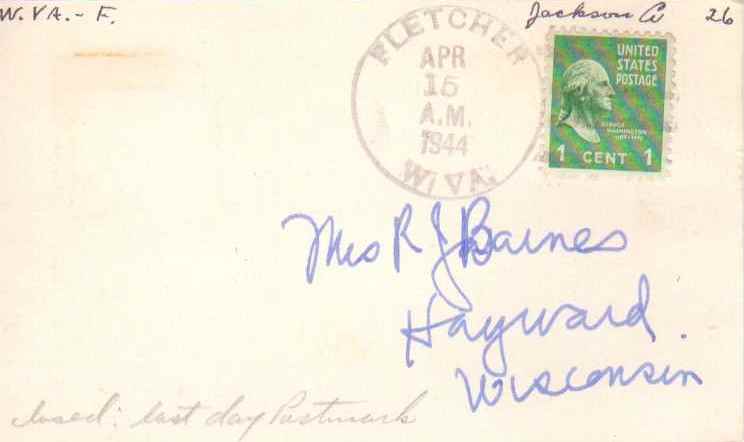 W. VA. - F.
Jackson Co 26
FLETCHER
APR
15
A.M.
1944
W. VA.
UNITED
STATES
POSTAGE
GEORGE
WASHINGTON
1 CENT 1
Mrs R J Barnes
Hayward.
Wisconsin
closed: last day Postmark